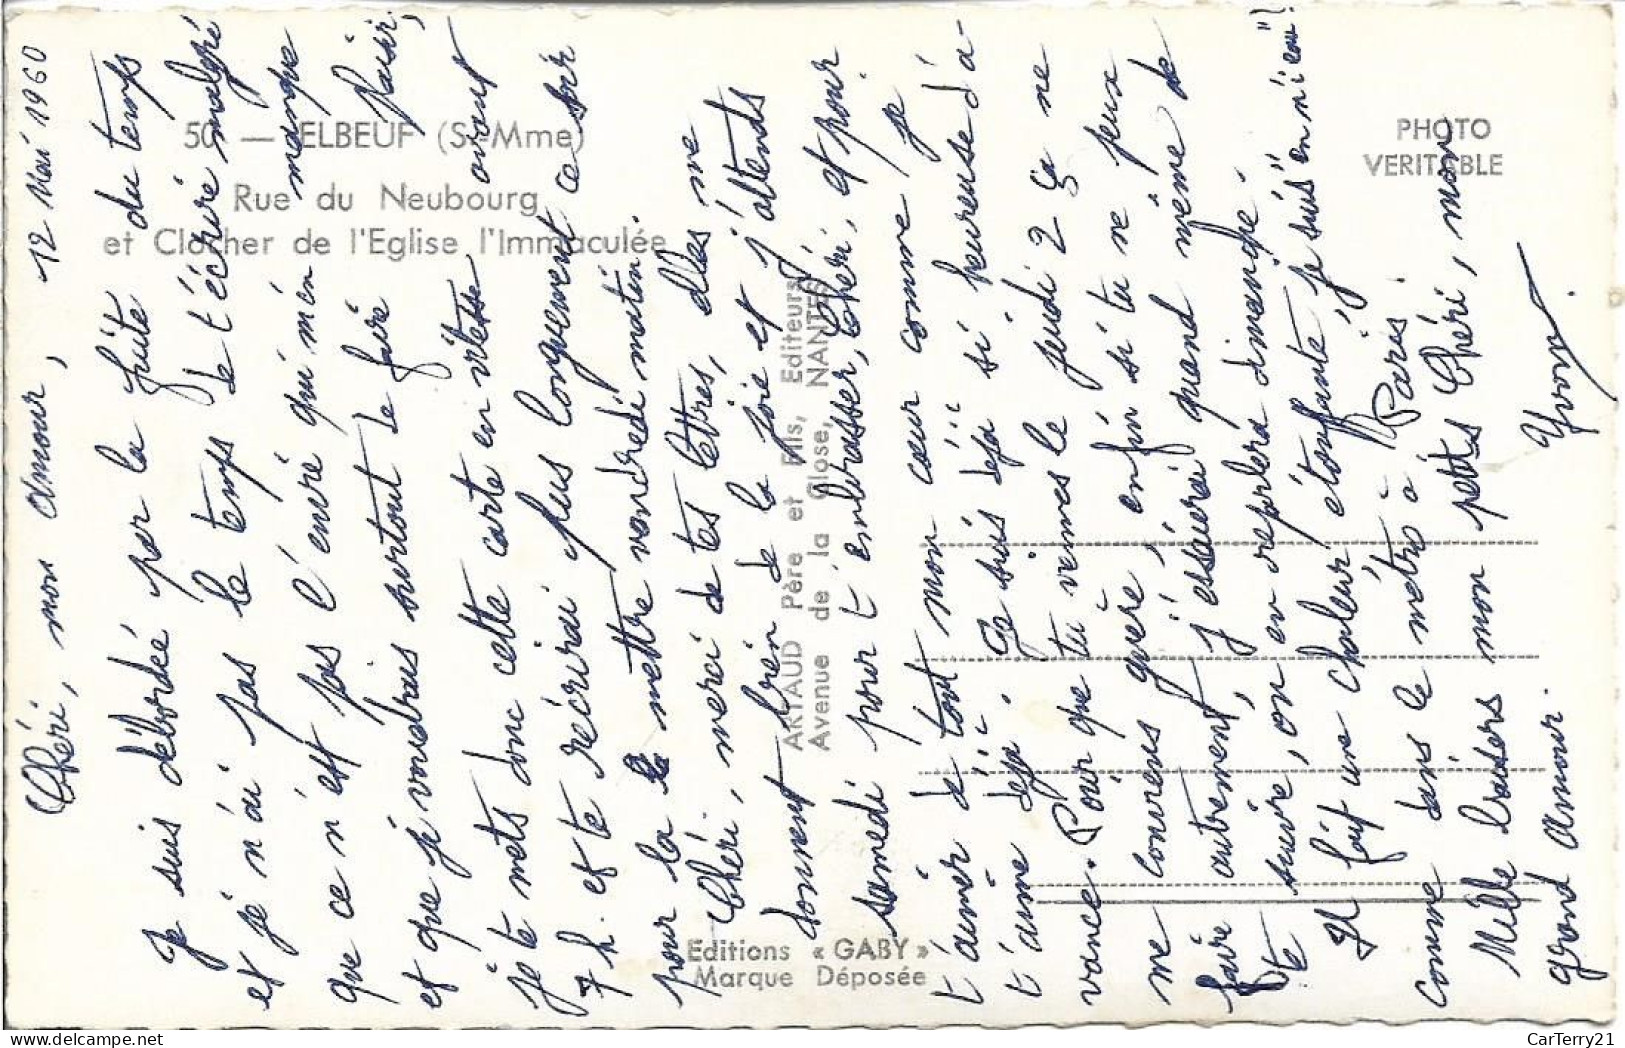 12 Mai 1960
Chéri, mon amour,
Je suis débordée par la fuite du temps
et je n'ai pas le temps de t'écrire malgré
que ce n'est pas l'envie qui m'en manque
et que je voudrais surtout te faire plaisir,
je te mets donc cette carte en vitesse avant
7 h. et te récrirai plus longuement ce soir
pour la mettre vendredi matin.
Chéri, merci de tes lettres, elles me
donnent bien de la joie et j'attends
samedi pour t'embrasser, Chéri, et pour
t'aimer de tout mon cœur comme je
t'aime déjà. Je suis déjà si heureuse d'a-
vance. Pour que tu viennes le jeudi 2 ça ne
me convient guère, enfin si tu ne peux
faire autrement, j'essaierai quand même de
te suivre, on en reparlera dimanche.
Il fait une chaleur étouffante, je suis "en n'i eau"!
comme dans le métro à Paris!
Mille baisers mon petit Chéri, mon
grand Amour.
Yvon
50 — ELBEUF (S.-Mme)
Rue du Neubourg
et Clocher de l'Eglise l'Immaculée
PHOTO
VERITABLE
ARTAUD Père et Fils, Editeurs
Avenue de la Close, NANTES
Editions « GABY »
Marque Déposée
CarTerry21